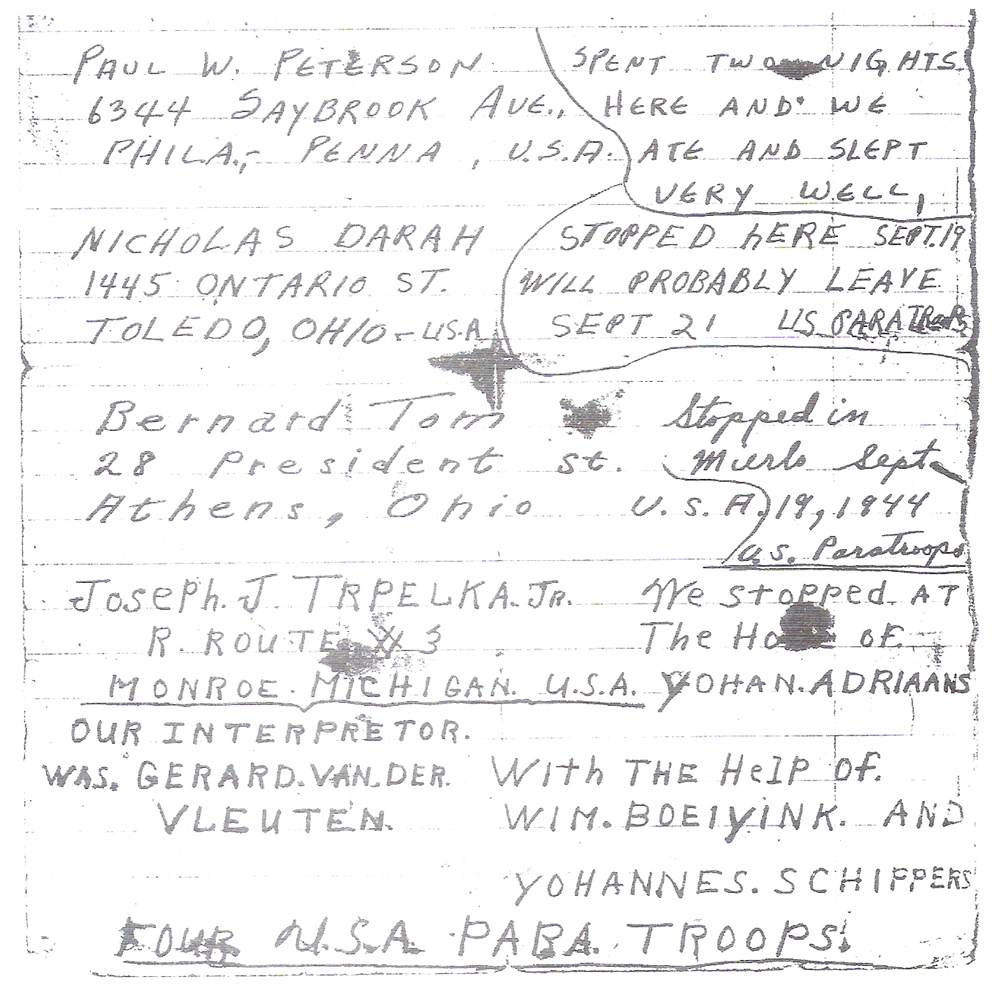 PAUL W. PETERSON
6344 SAYBROOK AVE.,
PHILA,- PENNA, U.S.A.
SPENT TWO NIGHTS
HERE AND WE
ATE AND SLEPT
VERY WELL,
NICHOLAS DARAH
1445 ONTARIO ST.
TOLEDO, OHIO - USA
STOPPED hERE SEPT.19
WILL PROBABLY LEAVE
SEPT 21 US PARATROOPS
Bernard Tom
28 President St.
Athens, Ohio U.S.A.
Stopped in
Mierlo Sept.
19, 1944
U.S. Paratroops
Joseph. J. TRPELKA. JR.
R. ROUTE # 3
MONROE. MICHIGAN. U.S.A.
We stopped AT
The HOME OF.
YOHAN. ADRIAANS
OUR INTERPRETOR.
WAS. GERARD. VAN. DER.
VLEUTEN.
With THE HelP Of.
WIM. BOEIYINK. AND
YOHANNES. SCHIPPERS
FOUR U.S.A. PARA. TROOPS.